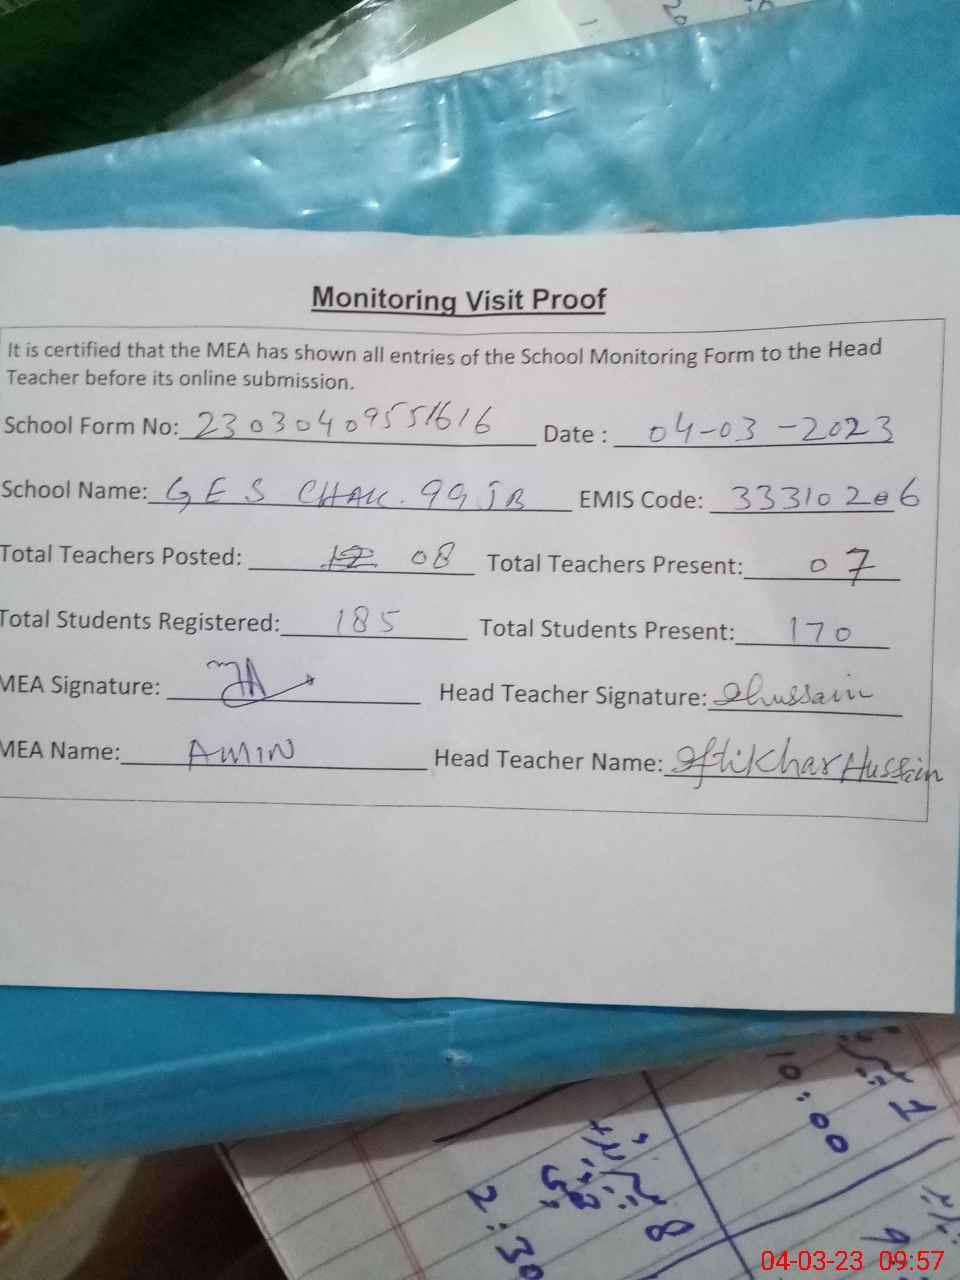 Monitoring Visit Proof
It is certified that the MEA has shown all entries of the School Monitoring Form to the Head
Teacher before its online submission.
School Form No: 23030409551616 Date : 04-03-2023
School Name: GES CHAK. 99 JB EMIS Code: 33310206
Total Teachers Posted: 08 Total Teachers Present: 07
Total Students Registered: 185 Total Students Present: 170
MEA Signature: Head Teacher Signature: Ihussain
MEA Name: AMIN Head Teacher Name: Iftikhar Hussain
10:00
2:30
8
04-03-23 09:57